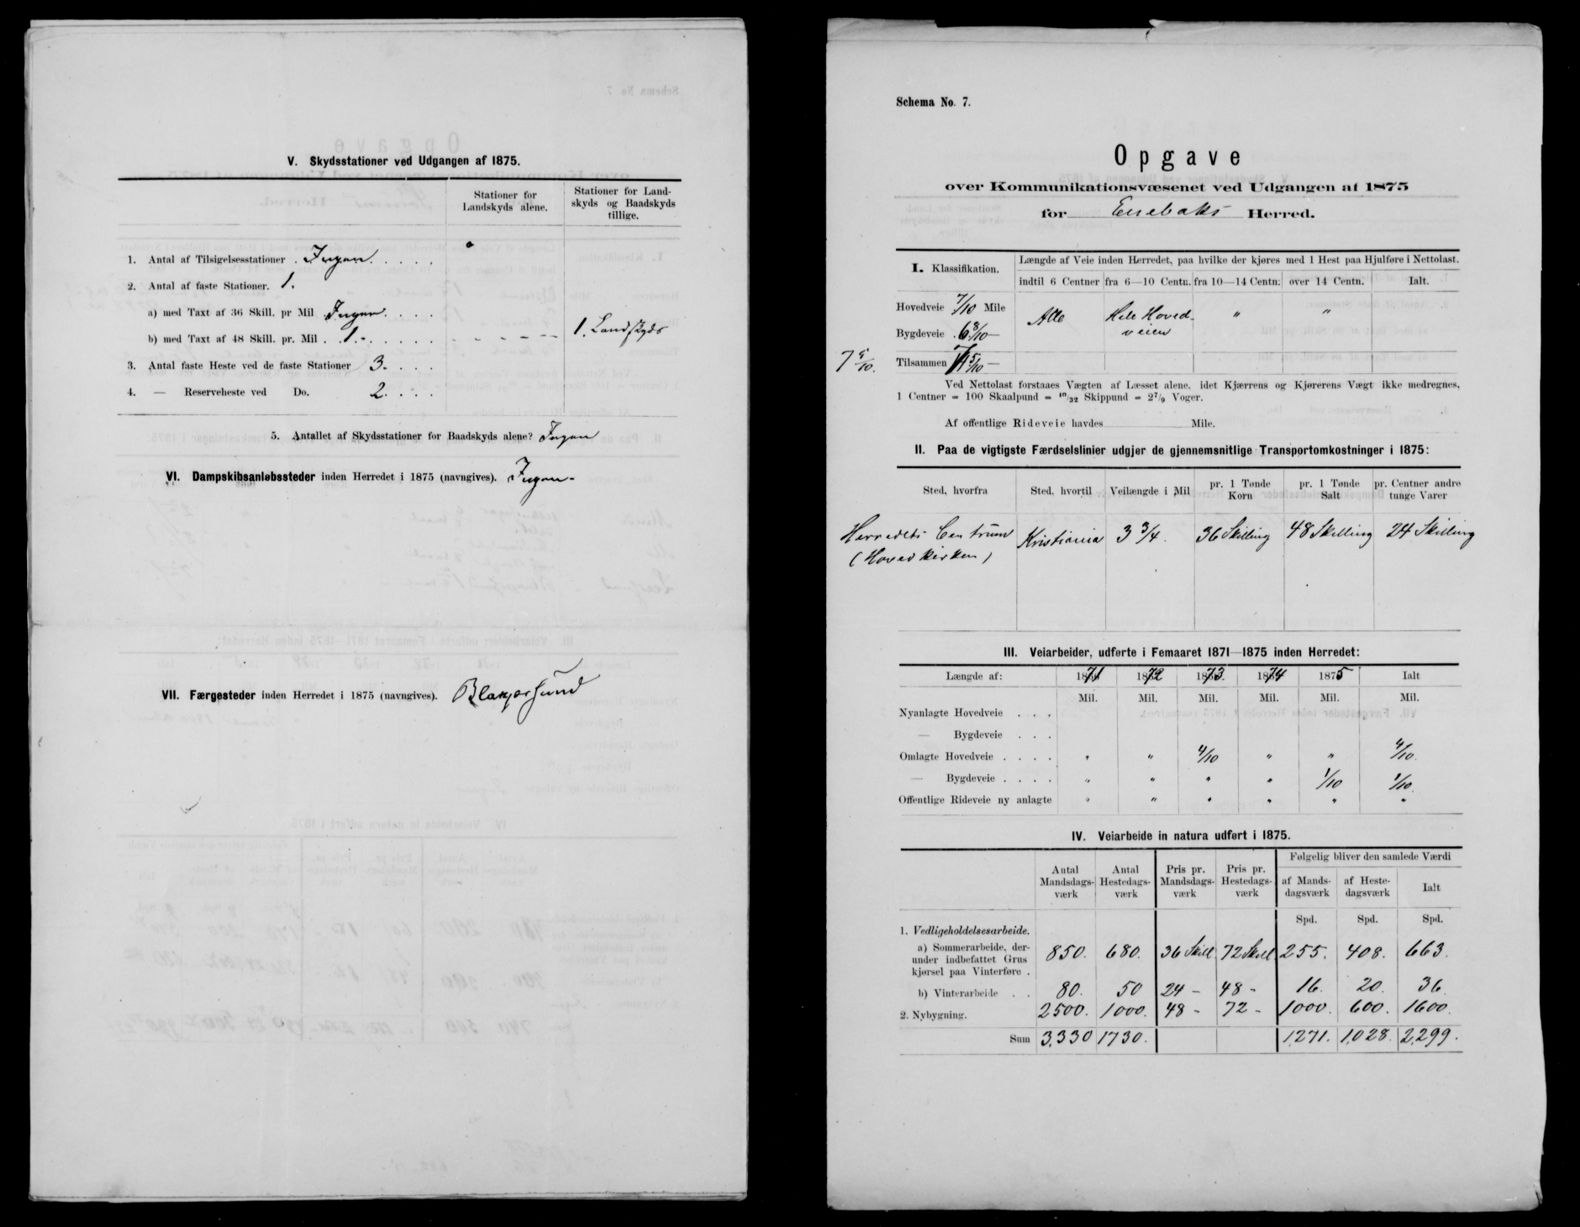 V. Skydsstationer ved Udgangen af 1875.
Stationer for Landskyds alene.
Stationer for Land-skyds og Baadskyds tillige.
1. Antal af Tilsigelsesstationer . Ingen . . . . .
2. Antal af faste Stationer. 1.
a) med Taxt af 36 Skill. pr Mil Ingen . . . .
b) med Taxt af 48 Skill. pr. Mil . 1.- . . . . 1. Landskyds
3. Antal faste Heste ved de faste Stationer 3. . . .
4. — Reserveheste ved Do. 2. . . .
5. Antallet af Skydsstationer for Baadskyds alene? Ingen
VI. Dampskibsanløbssteder inden Herredet i 1875 (navngives). Ingen-
VII. Færgesteder inden Herredet i 1875 (navngives). Blakjersund
Schema No. 7.
Opgave
over Kommunikationsvæsenet ved Udgangen af 1875
for Enebaks Herred.
I. Klassifikation.
Længde af Veie inden Herredet, paa hvilke der kjøres med 1 Hest paa Hjulføre i Nettolast.
indtil 6 Centner fra 6—10 Centn. fra 10—14 Centn. over 14 Centn. Ialt.
Hovedveie 7/10 Mile Alle Hele Hoved- " "
Bygdeveie . 6 8/10 — veien
7 5/10. Tilsammen 7 5/10 —
Ved Nettolast forstaaes Vægten af Læsset alene, idet Kjærrens og Kjørerens Vægt ikke medregnes,
1 Centner = 100 Skaalpund = 10/32 Skippund = 2 7/9 Voger.
Af offentlige Rideveie havdes Mile.
II. Paa de vigtigste Færdselslinier udgjør de gjennemsnitlige Transportomkostninger i 1875:
Sted, hvorfra Sted, hvortil Veilængde i Mil pr. 1 Tønde Korn pr. 1 Tønde Salt pr. Centner andre tunge Varer
Herredets Centrum Kristiania 3 3/4. 36 Skilling 48 Skilling 24 Skilling
(Hovedkirken)
III. Veiarbeider, udførte i Femaaret 1871—1875 inden Herredet:
Længde af: 1871 1872 1873. 1874 1875 Ialt
Mil. Mil. Mil. Mil. Mil. Mil.
Nyanlagte Hovedveie . . .
— Bygdeveie . . .
Omlagte Hovedveie . . . . " " 4/10 " " 4/10.
— Bygdeveie . . . . " " " " 1/10 1/10.
Offentlige Rideveie ny anlagte " " " " " "
IV. Veiarbeide in natura udført i 1875.
Antal Mandsdags-værk
Antal Hestedags-værk
Pris pr. Mandsdags-værk
Pris pr. Hestedags-værk
Følgelig bliver den samlede Værdi
af Mands-dagsværk
af Heste-dagsværk
Ialt
Spd. Spd. Spd.
1. Vedligeholdelsesarbeide.
a) Sommerarbeide, der-
under indbefattet Grus 850. 680. 36 Skill. 72 Skill. 255. 408. 663.
kjørsel paa Vinterføre .
b) Vinterarbeide . . 80. 50 24 - 48 - 16. 20. 36.
2. Nybygning. 2500. 1000. 48 - 72 - 1000. 600. 1600.
Sum 3.330 1730. 1.271. 1.028. 2.299.